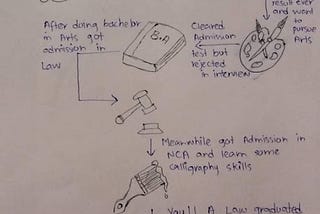 result ever
and want
to
pursue
Arts
Cleared
Admission
test but
rejected
in interview
B.A
After doing bachelor
in Arts got
admission in
Law
Meanwhile got Admission in
NCA and learn some
calligraphy skills
You'll A Law graduated